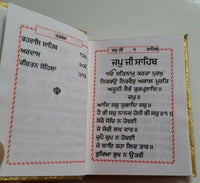 ਤਤਕਰਾ
ਰਹਰਾਸਿ ਸਾਹਿਬ
ਅਰਦਾਸ
ਕੀਰਤਨ ਸੋਹਿਲਾ
ਜਪੁ ਜੀ ੧ ਸਾਹਿਬ
ਜਪੁ ਜੀ ਸਾਹਿਬ
ੴ ਸਤਿਨਾਮੁ ਕਰਤਾ ਪੁਰਖੁ
ਨਿਰਭਉ ਨਿਰਵੈਰੁ ਅਕਾਲ ਮੂਰਤਿ
ਅਜੂਨੀ ਸੈਭੰ ਗੁਰਪ੍ਰਸਾਦਿ॥
॥ਜਪੁ॥
ਆਦਿ ਸਚੁ ਜੁਗਾਦਿ ਸਚੁ॥
ਹੈ ਭੀ ਸਚੁ ਨਾਨਕ ਹੋਸੀ ਭੀ ਸਚੁ॥੧॥
ਸੋਚੈ ਸੋਚਿ ਨ ਹੋਵਈ
ਜੇ ਸੋਚੀ ਲਖ ਵਾਰ॥
ਚੁਪੈ ਚੁਪ ਨ ਹੋਵਈ
ਜੇ ਲਾਇ ਰਹਾ ਲਿਵ ਤਾਰ॥
ਭੁਖਿਆ ਭੁਖ ਨ ਉਤਰੀ